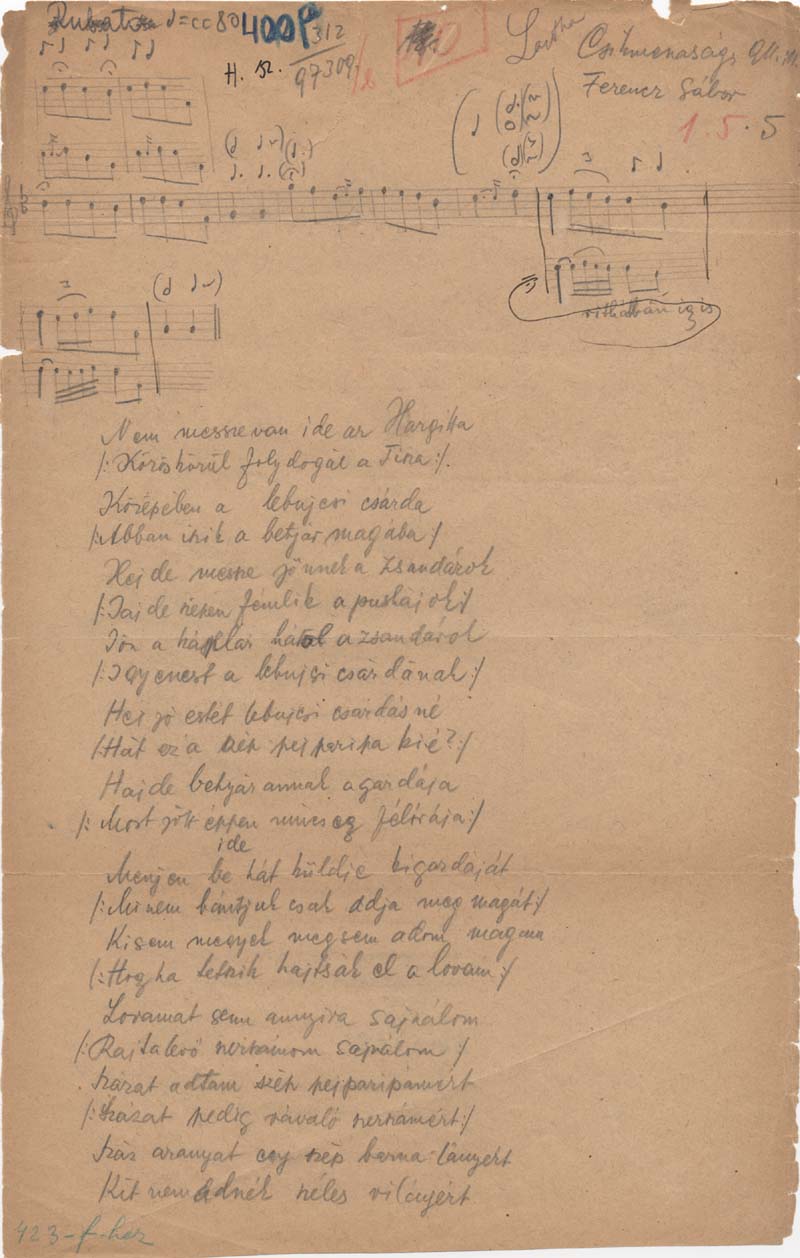 Rubato ♩=cc 80 400
312
H. 152. 97309
Csíkmenaság
Ferencz Gábor
1.5.5
3
3
Nem messze van ide az Hargitta
/: Köröskörül folydogál a Tisza :/.
Középében a lebujcsi csárda
/: Abban iszik a betjár magába :/
Hej de messze jönnek a zsandárok
/: Jön a káplár hátol a zsandárok
/: Igyenest a lebujsi csárdának :/
Hej jó estét lebujcsi csárdásné
/: Hát ez a szép pejparipa kié? :/
Hajde betyár annak agazdája
/: Most jött éppen nincs eg félórája :/
ide
Menjen be hát küldje kigazdaját
/: Mi nem bántjuk csak adja meg magát :/
Ki sem megyek megsem adom magam
/: Hogha tetszik hajtsák el a lovam :/
Lovamat sem annyira sajnálom
/: Rajtalevő szerszámom sajnálom :/
Százat adtam szép pejparipámért
/: Százat pedig rávaló szerszámért :/
Száz aranyat egy szép barna lányért
Kit nem adnék széles világért
423-f-hez